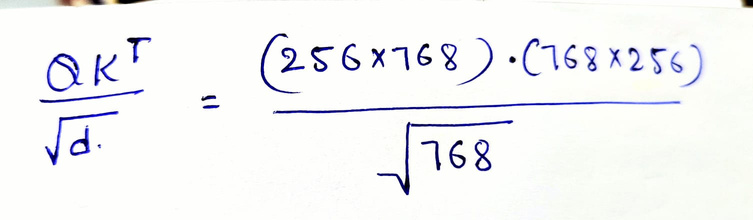 QK^T / √d. = (256×768)·(768×256) / √768